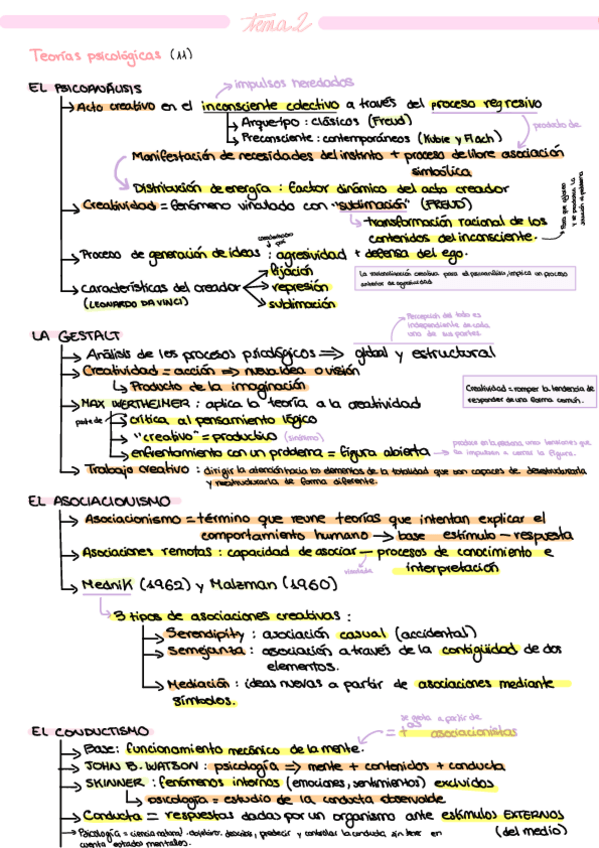 tema 2
Teorías psicológicas (11)
EL PSICOANÁLISIS
→ impulsos heredados
→ Acto creativo en el inconsciente colectivo a través del proceso regresivo
→ Arquetipo : clásicos (Freud)
→ Preconsciente : contemporáneos (Kubie y Flach)
producto de
Manifestación de necesidades del instinto + proceso de libre asociación
simbólica
Distribución de energía : factor dinámico del acto creador
→ Creatividad = fenómeno vinculado con "sublimación" (FREUD)
→ transformación racional de los
contenidos del inconsciente.
→ Proceso de generación de ideas : agresividad + defensa del ego.
→ características del creador
(LEONARDO DA VINCI)
fijación
represión
sublimación
La materialización creativa para el psicoanálisis, implica un proceso
anterior de agresividad
LA GESTALT
Percepción del todo es
independiente de cada
una de sus partes.
→ Análisis de los procesos psicológicos => global y estructural
→ Creatividad = acción => nueva idea o visión
→ Producto de la imaginación
Creatividad = romper la tendencia de
responder de una forma común.
→ MAX WERTHEIMER : aplica la teoría a la creatividad
parte de
→ crítica al pensamiento lógico
→ "creativo" = productivo (sinónimo)
→ enfrentamiento con un problema = figura abierta
produce en la persona unas tensiones que
la impulsan a cerrar la figura.
→ Trabajo creativo : dirigir la atención hacia los elementos de la totalidad que son capaces de desestructurarla
y reestructurarla de forma diferente.
EL ASOCIACIONISMO
→ Asociacionismo = término que reune teorías que intentan explicar el
comportamiento humano → base estímulo - respuesta
→ Asociaciones remotas : capacidad de asociar — procesos de conocimiento e
vinculada
interpretación
→ Mednik (1962) y Malzman (1960)
3 tipos de asociaciones creativas :
→ Serendipity : asociación casual (accidental)
→ Semejanza : asociación a través de la contigüidad de dos
elementos.
→ Mediación : ideas nuevas a partir de asociaciones mediante
símbolos.
EL CONDUCTISMO
se gesta a partir de
= + asociacionistas
→ Base: funcionamiento mecánico de la mente.
→ JOHN B. WATSON : psicología => mente + contenidos + conducta
→ SKINNER : fenómenos internos (emociones, sentimientos) excluidos
→ psicología = estudio de la conducta observable
→ Conducta = respuestas dadas por un organismo ante estímulos EXTERNOS
(del medio)
→ Psicología = ciencia natural. objetivo: describir, predecir y controlar la conducta sin tener en
cuenta estados mentales.